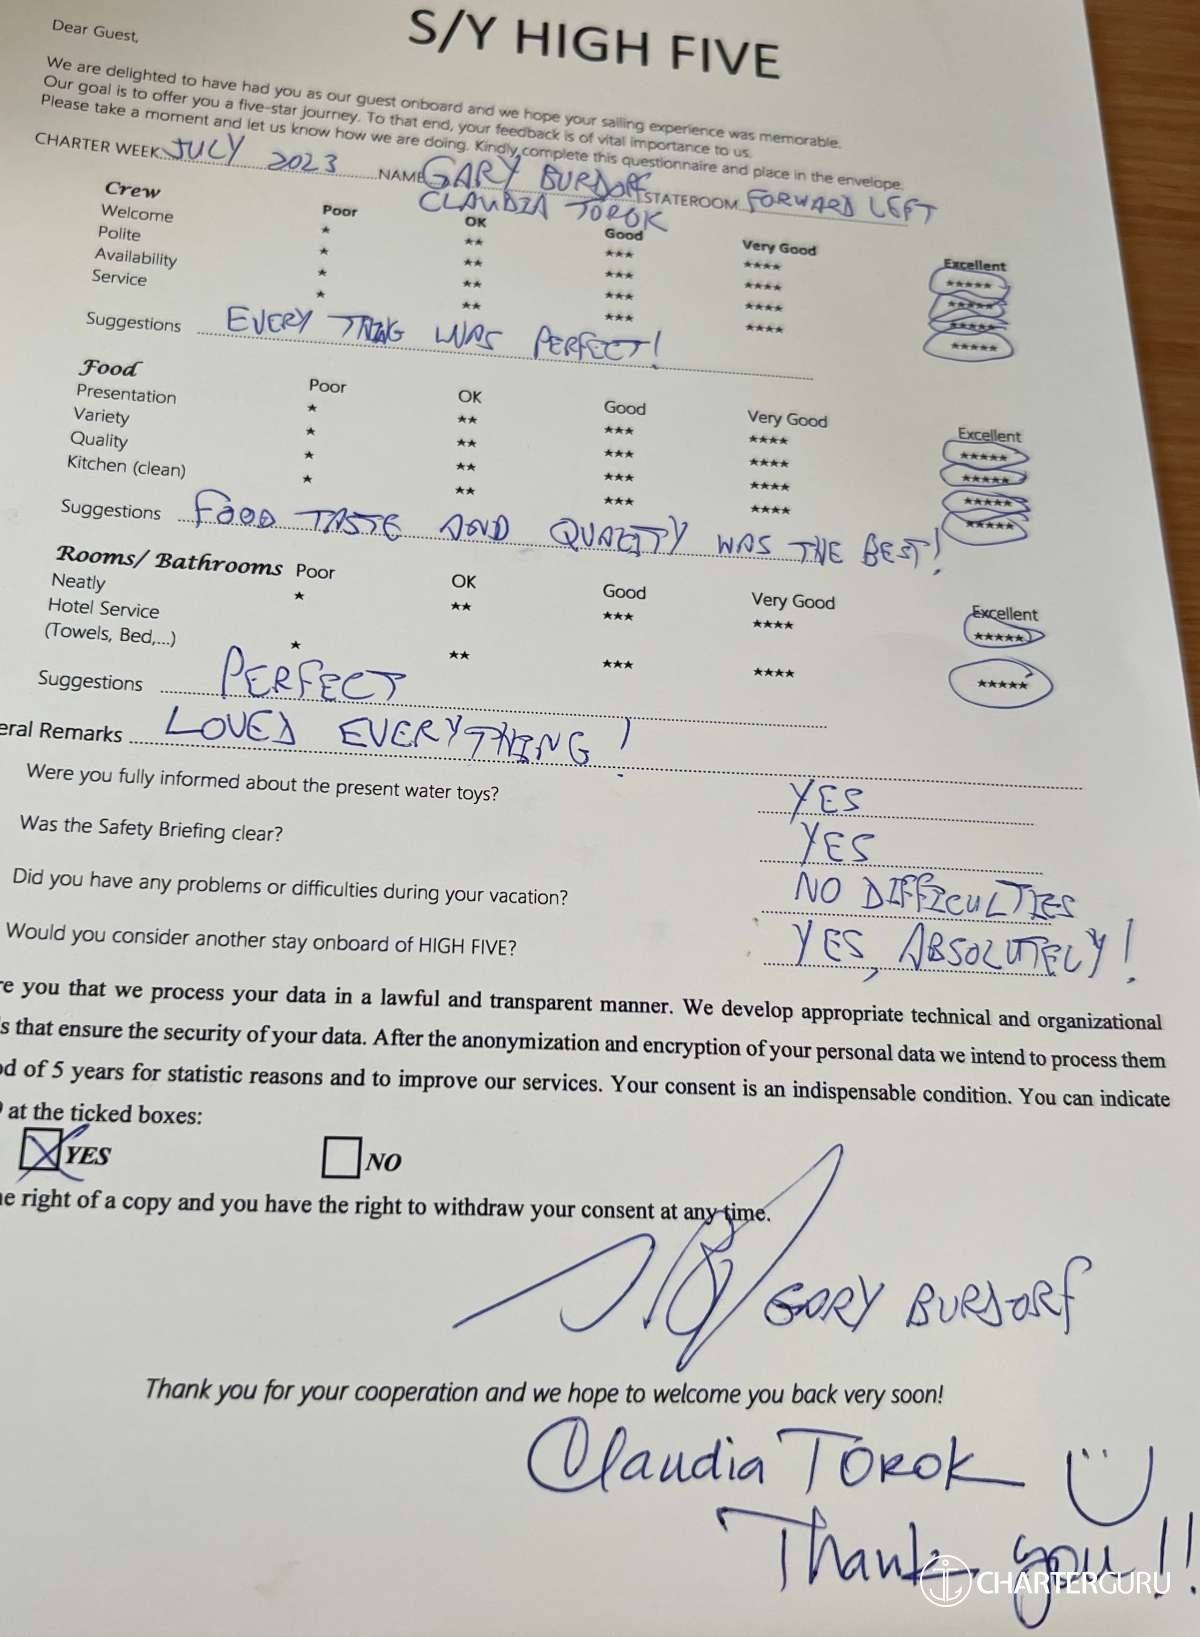 S/Y HIGH FIVE
Dear Guest,
We are delighted to have had you as our guest onboard and we hope your sailing experience was memorable.
Our goal is to offer you a five-star journey. To that end, your feedback is of vital importance to us.
Please take a moment and let us know how we are doing. Kindly complete this questionnaire and place in the envelope.
CHARTER WEEK JULY 2023 NAME GARY BURDORF STATEROOM FORWARD LEFT
CLAUDIA TOROK
Crew Poor OK Good Very Good Excellent
Welcome ★ ★★ ★★★ ★★★★ ★★★★★
Polite ★ ★★ ★★★ ★★★★ ★★★★★
Availability ★ ★★ ★★★ ★★★★ ★★★★★
Service ★ ★★ ★★★ ★★★★ ★★★★★
Suggestions EVERY THING WAS PERFECT!
Food Poor OK Good Very Good Excellent
Presentation ★ ★★ ★★★ ★★★★ ★★★★★
Variety ★ ★★ ★★★ ★★★★ ★★★★★
Quality ★ ★★ ★★★ ★★★★ ★★★★★
Kitchen (clean) ★ ★★ ★★★ ★★★★ ★★★★★
Suggestions FOOD TASTE AND QUALITY WAS THE BEST!
Rooms/ Bathrooms Poor OK Good Very Good Excellent
Neatly ★ ★★ ★★★ ★★★★ ★★★★★
Hotel Service
(Towels, Bed,...) ★ ★★ ★★★ ★★★★ ★★★★★
Suggestions PERFECT
eral Remarks LOVED EVERYTHING!
Were you fully informed about the present water toys? YES
Was the Safety Briefing clear? YES
Did you have any problems or difficulties during your vacation? NO DIFFICULTIES
Would you consider another stay onboard of HIGH FIVE? YES, ABSOLUTELY!
re you that we process your data in a lawful and transparent manner. We develop appropriate technical and organizational
s that ensure the security of your data. After the anonymization and encryption of your personal data we intend to process them
od of 5 years for statistic reasons and to improve our services. Your consent is an indispensable condition. You can indicate
at the ticked boxes:
YES NO
he right of a copy and you have the right to withdraw your consent at any time.
GARY BURDORF
Thank you for your cooperation and we hope to welcome you back very soon!
Claudia TOROK
Thank you!!
CHARTERGURU